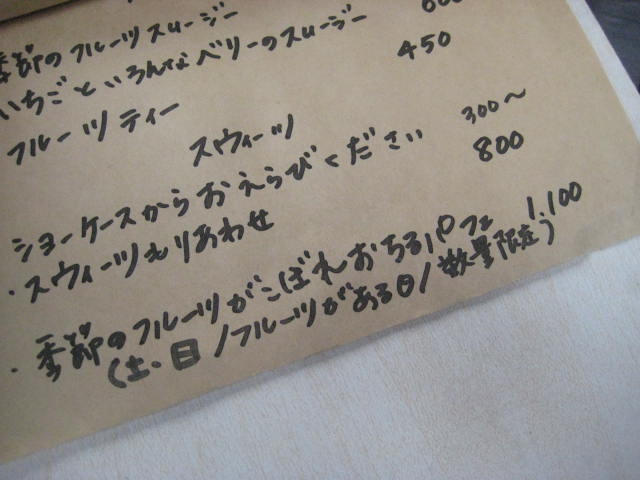 季節のフルーツスムージー 600
いちごといろんなベリーのスムージー
フルーツティー 450
スウィーツ
ショーケースからおえらびください 300〜
・スウィーツもりあわせ 800
・季節のフルーツがこぼれおちるパフェ 1,100
(土・日/フルーツがある日/数量限定)